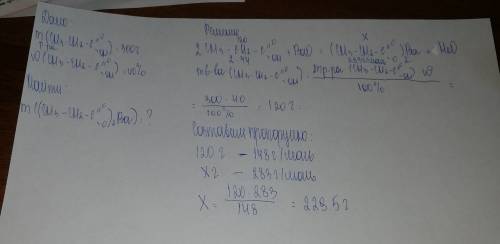 Дано:
m р-ра (CH3-CH2-C=O-OH) = 300г
ω(CH3-CH2-C=O-OH) = 40%
Найти:
m((CH3-CH2-C=O-O)2Ba)-?
Решение
120 X
2CH3-CH2-C=O-OH + BaO = (CH3-CH2-C=O-O)2Ba + H2O
2·74
m в-ва (CH3-CH2-C=O-OH) = mр-ра(CH3-CH2-C=O-OH)·ω / 100% =
= 300·40 / 100% = 120г.
Составим пропорцию:
120г. - 148г/моль
Xг. - 283г/моль
X = 120·283 / 148 = 229.5г